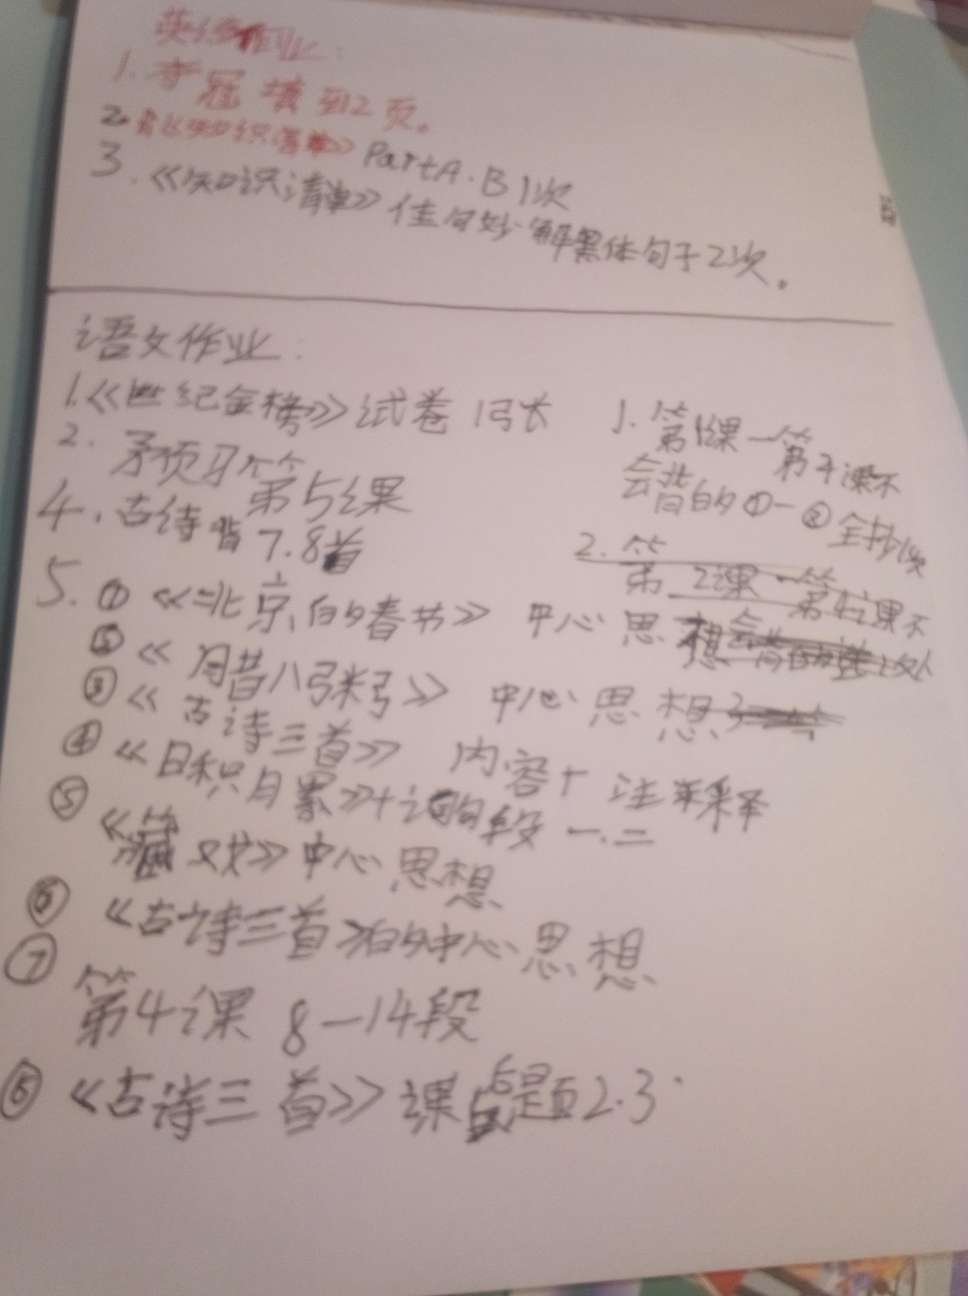 英语作业：
1. 夺冠填到12页。
2. 背《知识清单》PartA.B 1次
3.《知识清单》佳句妙解黑体句子2次。
语文作业：
1.《世纪金榜》试卷 1张
2. 预习第5课
4. 古诗背7.8首
5. ①《北京的春节》 中心思想
②《腊八粥》 中心思想
③《古诗三首》 内容+注释
④《日积月累》+词句段 一.二
⑤《藏戏》中心思想
⑥《古诗三首》的中心思想
⑦ 第4课 8—14段
⑧《古诗三首》课题2.3
1. 第1课—第4课不
会背的①—②全抄1次
2. 第2课—第4课不